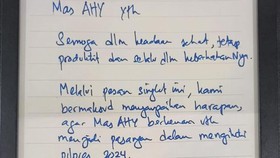 Mas AHY yth
Semoga dlm keadaan sehat, tetap
produktif dan selalu dlm keberkatan Nya.
Melalui pesan singkat ini, kami
bermaksud menyampaikan harapan,
agar Mas AHY berkenan utk
menjadi pasangan dalam mengikuti
pilpres 2024.